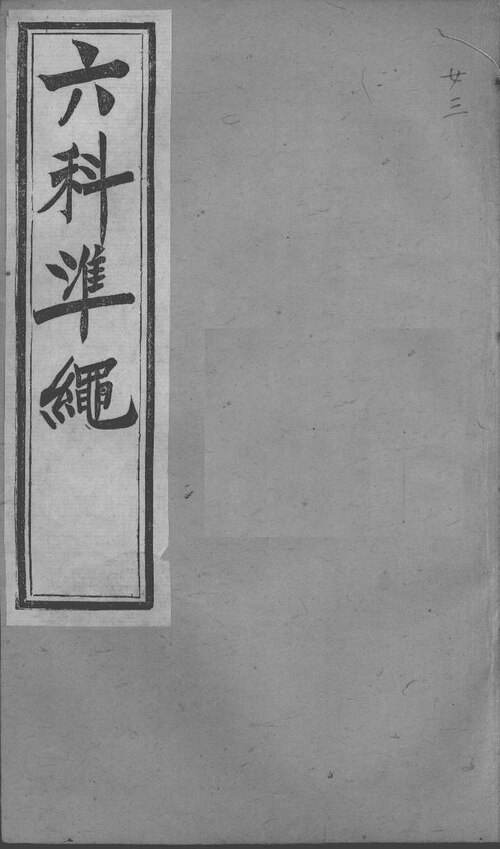 六科準繩
廿三